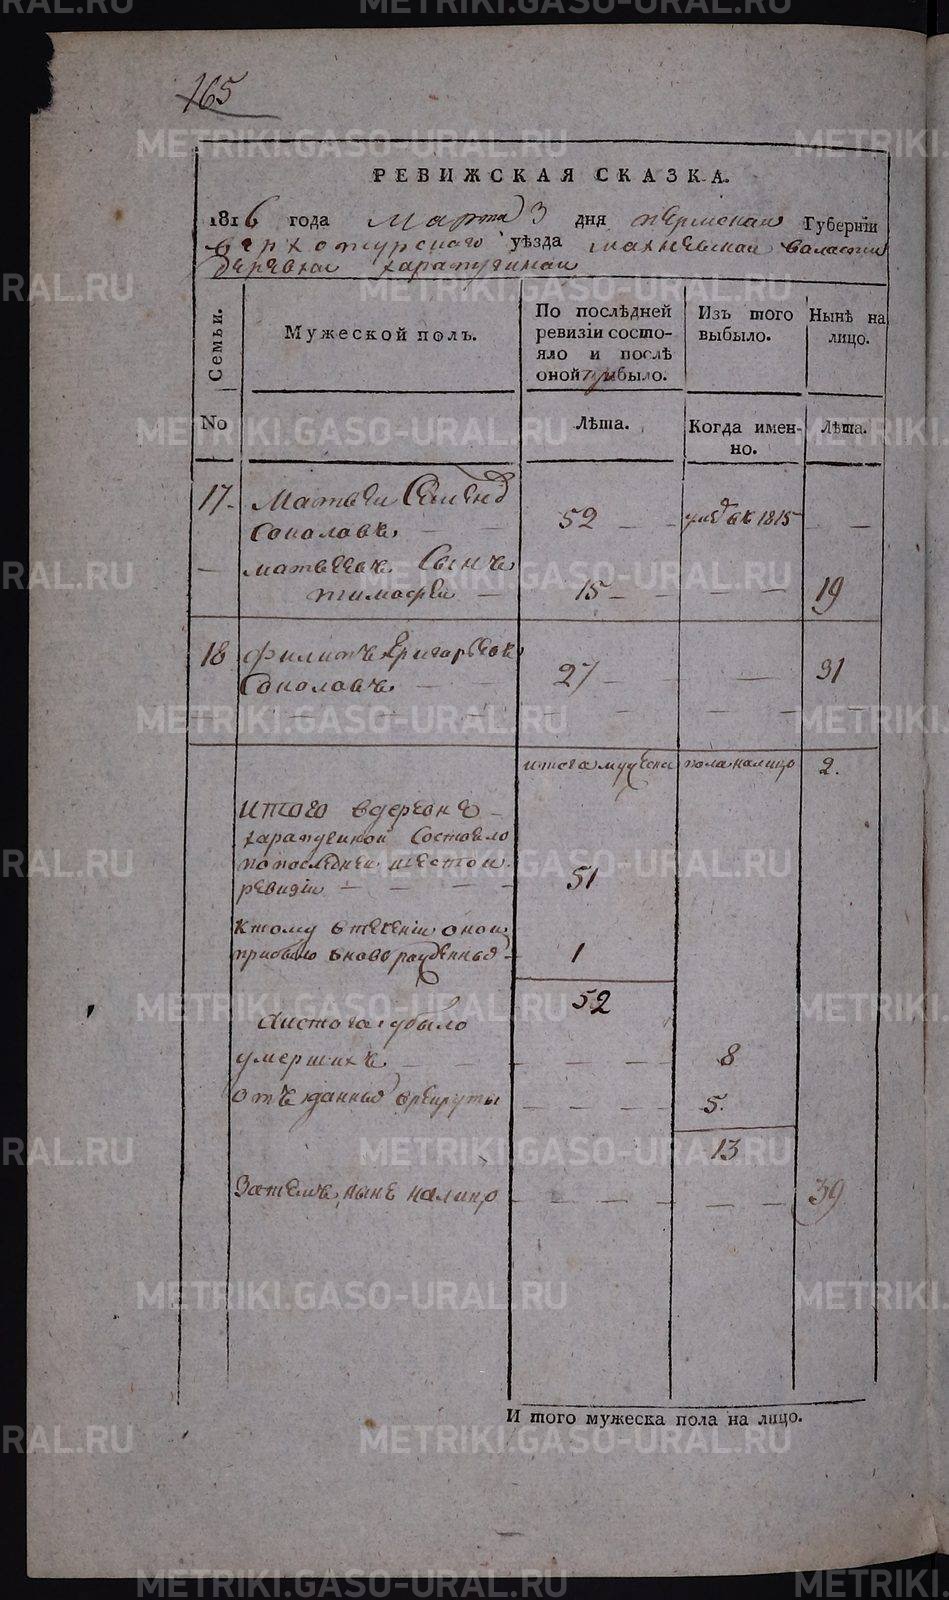 165
РЕВИЖСКАЯ СКАЗКА.
1816 года Марта 3 дня пермскай Губерніи
верхотурскаго уѣзда махневскай валасти
деревхаи харапугинаи
Семьи.
Мужеской полъ.
По послѣдней ревизіи состояло и послѣ оной прибыло.
Изъ того выбыло.
Нынѣ на лицо.
No
Лѣта.
Когда именно.
Лѣта.
17. Матвеи Семенд
Соколовъ 52 умѣ вк 1815
матвеевъ Сынъ
тимофеи 15 19
18 Филипъ Григарьевъ
Соколовъ 27 31
итого мужска пола налицо 2.
итого вдеревнѣ
харапугинои Состояло
попоследнеи шестои
ревизіи 51
ктому втеченіи онои
прибыло вновь рожденныхъ 1
52
Аистого убыло
умершихъ 8
отъданныхъ врекруты 5.
13
Затемъ, ныне налицо 39
И того мужеска пола на лицо.
METRIKI.GASO-URAL.RU